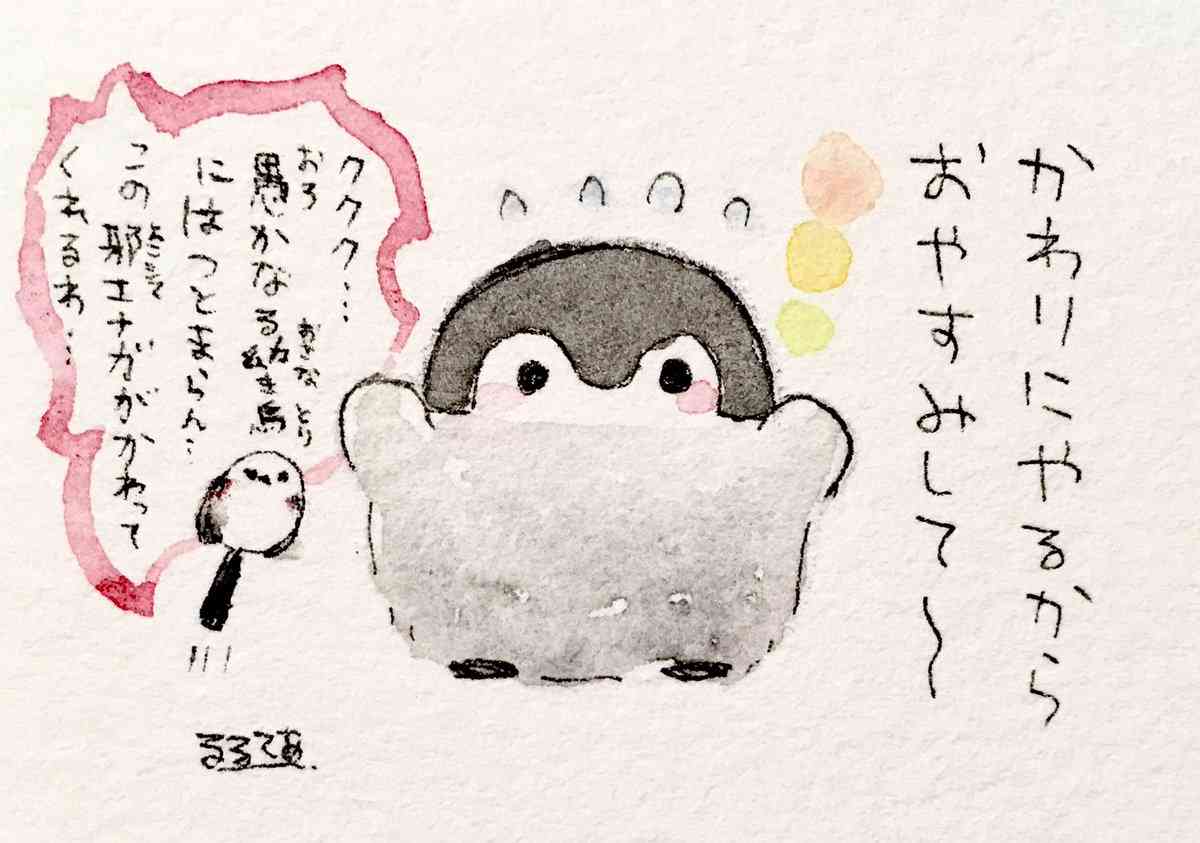 かわりにやるから
おやすみして〜
ククク…
おろ おさな とり
愚かなる幼き鳥
にはつとまらん…
よこしま
この邪エナガがかわって
くれるわ…
るるてあ.